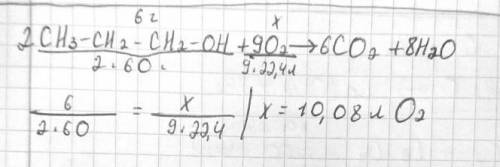 6 г x
2CH3-CH2-CH2-OH + 9O2 → 6CO2 + 8H2O
2·60 9·22,4л
6/2·60 = x/9·22,4 | x = 10,08 л O2